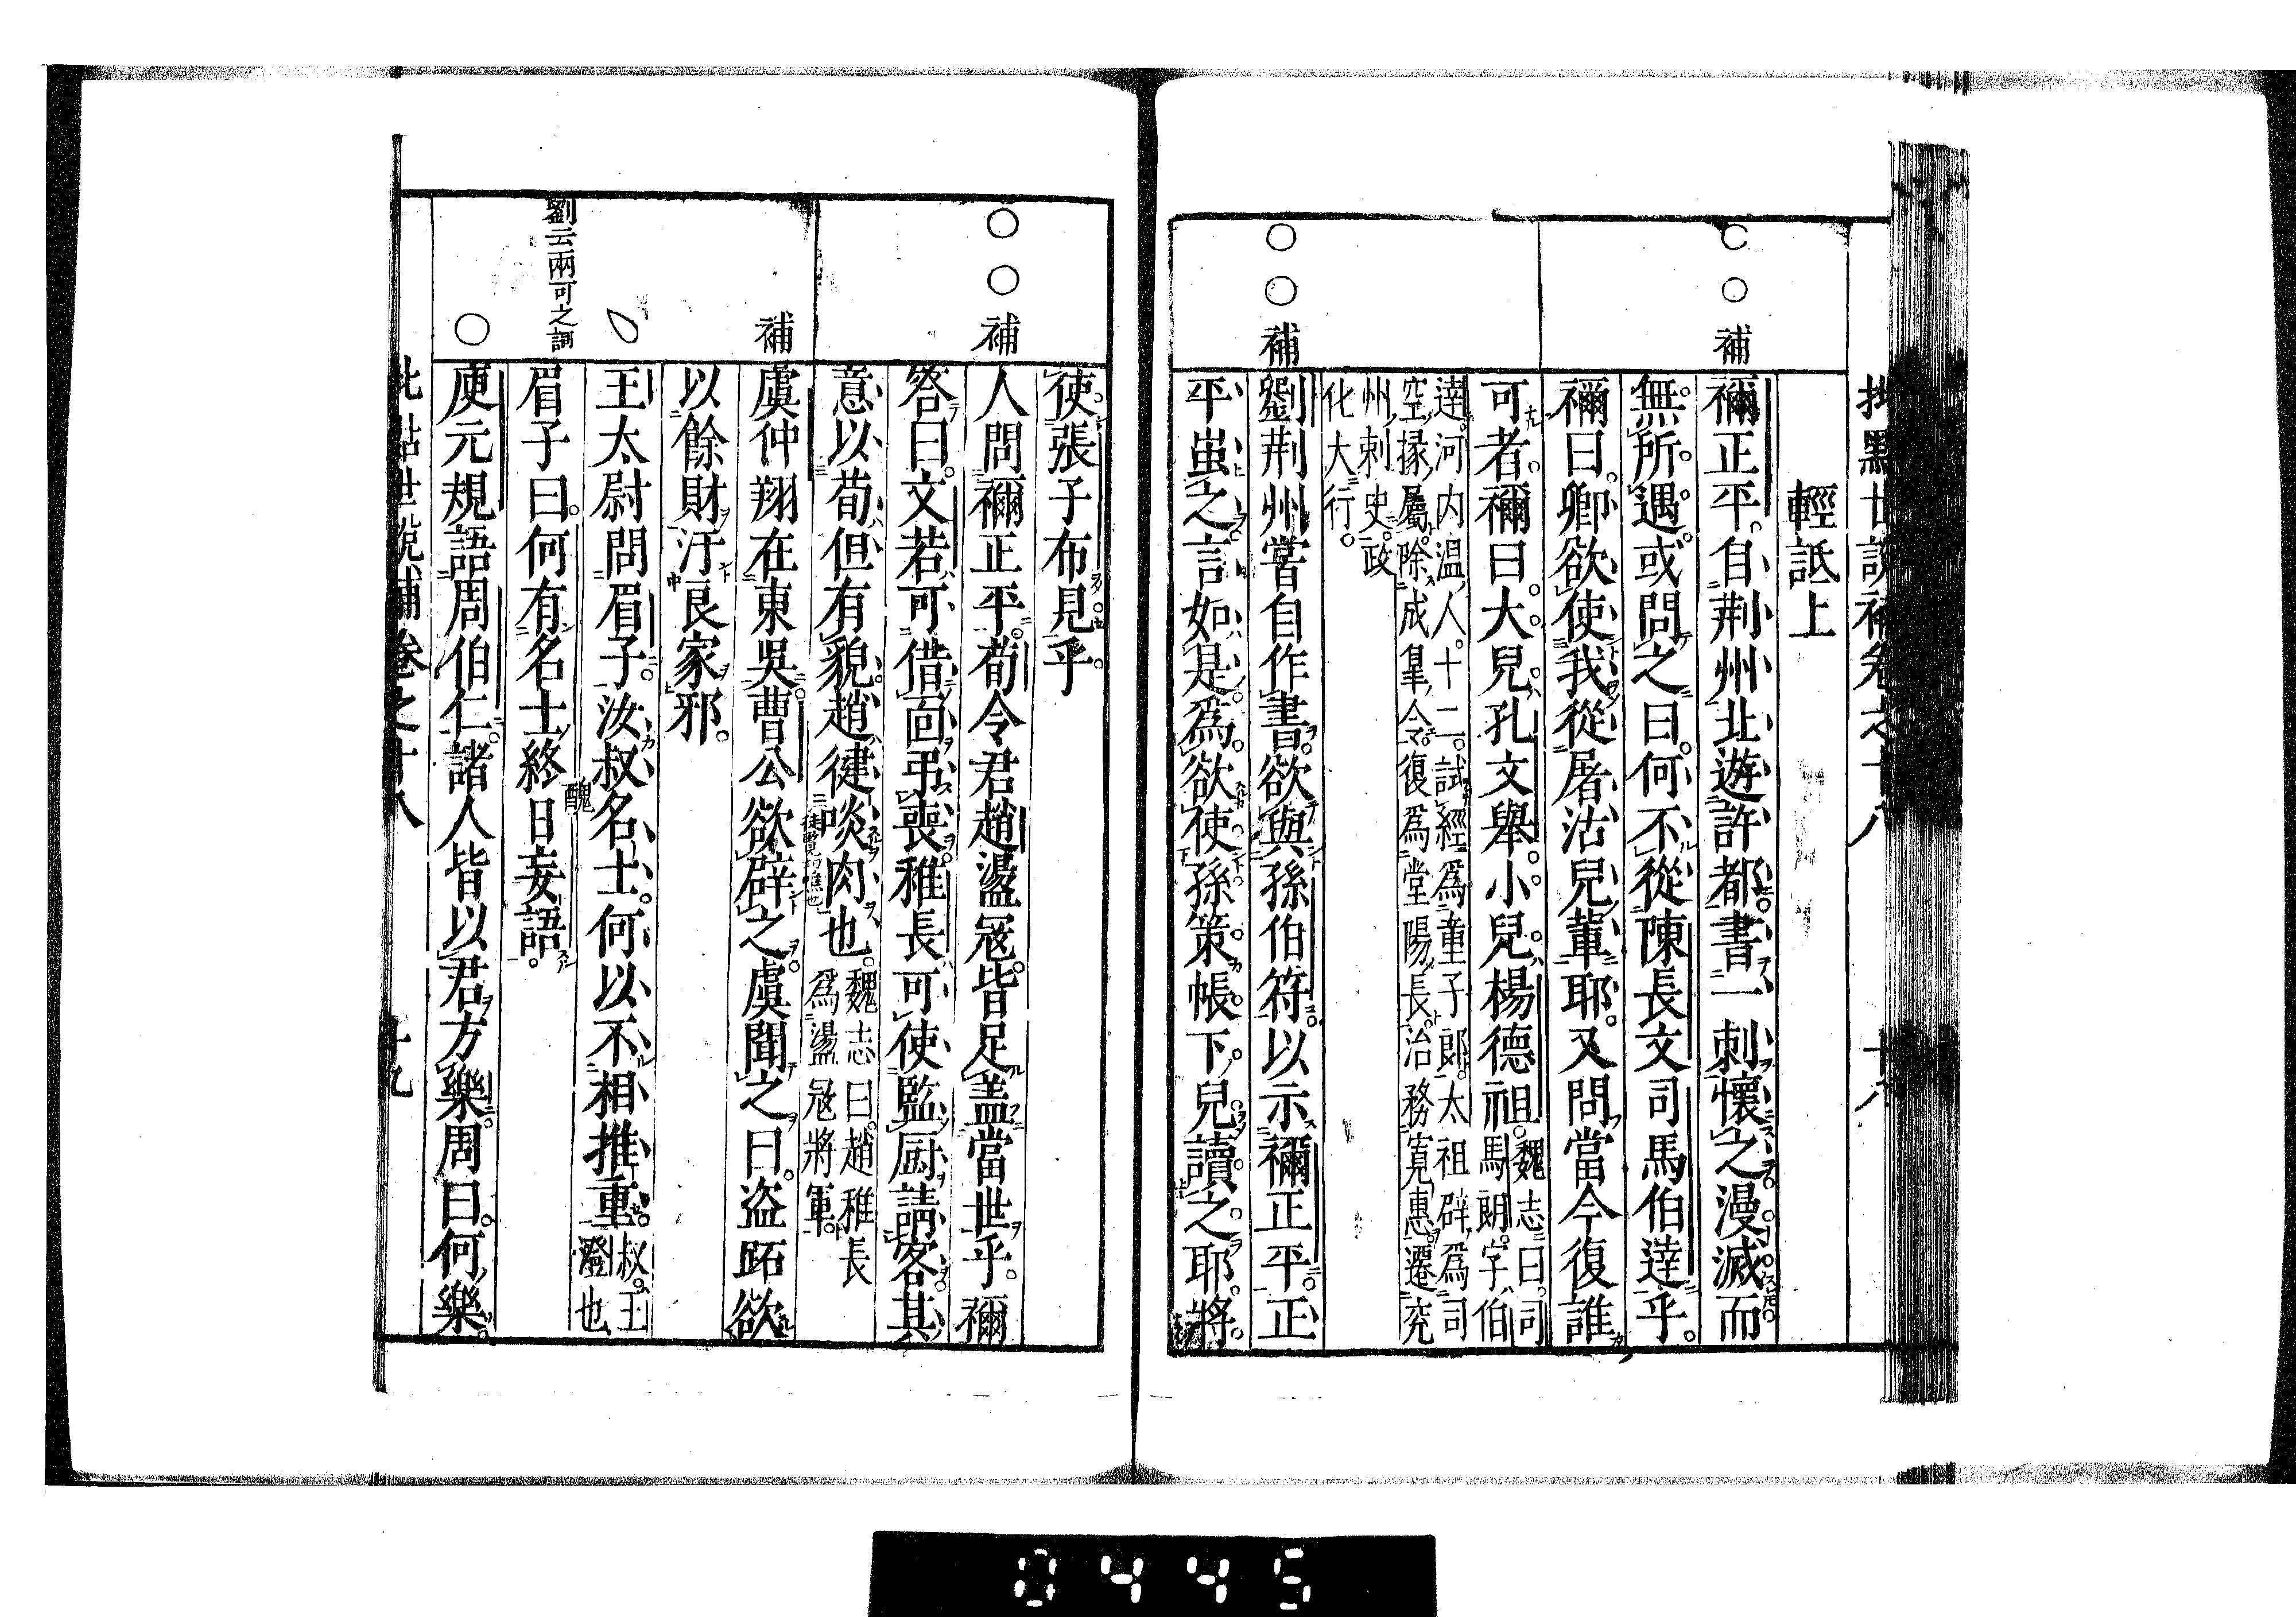 批點世說補卷之十八 十八
輕詆上
補
禰正平自荊州北遊許都書一刺懷之漫滅而
無所遇或問之曰何不從陳長文司馬伯達乎
禰曰卿欲使我從屠沽兒輩耶又問當今復誰
可者禰曰大兒孔文舉小兒楊德祖魏志曰司
馬朗字伯
達河內溫人十二試經為童子郎太祖辟為司
空掾屬除成皐令復為堂陽長治務寬惠遷兖
州刺史政
化大行
補
劉荊州嘗自作書欲與孫伯符以示禰正平正
平蚩之言如是為欲使孫策帳下兒讀之耶將
使張子布見乎
補
人問禰正平荀令君趙盪寇皆足蓋當世乎禰
答曰文若可借面弔喪稚長可使監厨請客其
意以荀但有貌趙健啖肉也魏志曰趙稚長
為盪寇將軍
補
虞仲翔在東吳曹公欲辟之虞聞之曰盜跖欲
以餘財汙良家邪
王太尉問眉子汝叔名士何以不相推重叔王
澄也
劉云兩可之詞
眉子曰何有名士終日妄語
庾元規語周伯仁諸人皆以君方樂周曰何樂
批點世說補卷之十八 十九